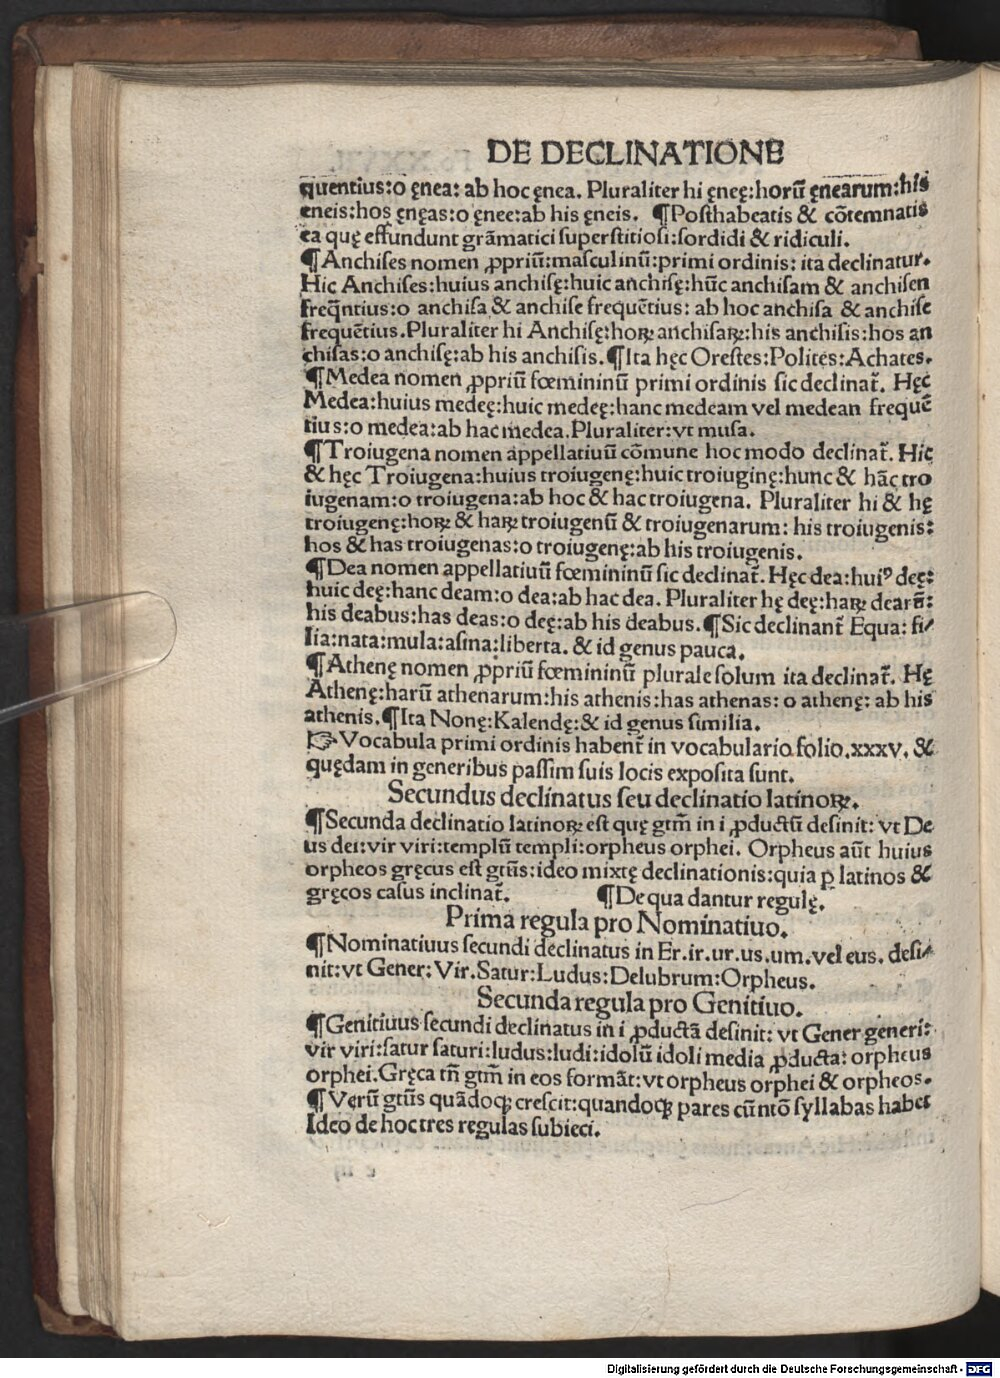 DE DECLINATIONE
quentius:o ęnea: ab hoc ęnea. Pluraliter hi ęneę:horū ęnearum:his
eneis:hos ęnęas:o ęnee:ab his ęneis. ¶Posthabeatis & cōtemnatis
ea quę effundunt grāmatici superstitiosi:sordidi & ridiculi.
¶Anchises nomen ꝓpriū:masculinū:primi ordinis: ita declinatur.
Hic Anchises:huius anchisę:huic anchisę:hūc anchisam & anchisen
freq̄ntius:o anchisa & anchise frequētius: ab hoc anchisa & anchise
frequētius.Pluraliter hi Anchisę:hoꝝ anchisaꝝ:his anchisis:hos an
chisas:o anchisę:ab his anchisis.¶Ita hęc Orestes:Polites:Achates.
¶Medea nomen ꝓpriū fœmininū primi ordinis sic declinat̄. Hęc
Medea:huius medeę:huic medeę:hanc medeam vel medean frequē
tius:o medea:ab hac medea.Pluraliter:vt musa.
¶Troiugena nomen appellatiuū cōmune hoc modo declinat̄. Hic
& hęc Troiugena:huius troiugenę:huic troiuginę:hunc & hāc tro
iugenam:o troiugena:ab hoc & hac troiugena. Pluraliter hi & hę
troiugenę:hoꝝ & haꝝ troiugenū & troiugenarum: his troiugenis:
hos & has troiugenas:o troiugenę:ab his troiugenis.
¶Dea nomen appellatiuū fœmininū sic declinat̄. Hęc dea:huiꝰ deę:
huic deę:hanc deam:o dea:ab hac dea. Pluraliter hę deę:haꝝ dearū:
his deabus:has deas:o deę:ab his deabus.¶Sic declinant̄ Equa: fi/
lia:nata:mula:asina:liberta. & id genus pauca.
¶Athenę nomen ꝓpriū fœmininū plurale solum ita declinat̄. Hę
Athenę:harū athenarum:his athenis:has athenas: o athenę: ab his
athenis.¶Ita Nonę:Kalendę:& id genus similia.
☞Vocabula primi ordinis habent̄ in vocabulario folio.xxxv. &
quędam in generibus passim suis locis exposita sunt.
Secundus declinatus seu declinatio latinoꝝ.
¶Secunda declinatio latinoꝝ est quę gtm̄ in i ꝓductū desinit: vt De
us dei:vir viri:templū templi:orpheus orphei. Orpheus aūt huius
orpheos gręcus est gtūs:ideo mixtę declinationis:quia ꝑ latinos &
gręcos casus inclinat̄. ¶De qua dantur regulę.
Prima regula pro Nominatiuo.
¶Nominatiuus secundi declinatus in Er.ir.ur.us.um.vel eus. desi/
nit:vt Gener:Vir.Satur:Ludus:Delubrum:Orpheus.
Secunda regula pro Genitiuo.
¶Genitiuus secundi declinatus in i ꝓductā desinit: vt Gener generi:
vir viri:satur saturi:ludus:ludi:idolū idoli media ꝓducta: orpheus
orphei.Gręca tn̄ gtm̄ in eos formāt:vt orpheus orphei & orpheos.
¶Verū gtūs quādoqꝫ crescit:quandoqꝫ pares cū ntō syllabas habet
Ideo de hoc tres regulas subieci.
Digitalisierung gefördert durch die Deutsche Forschungsgemeinschaft - DFG